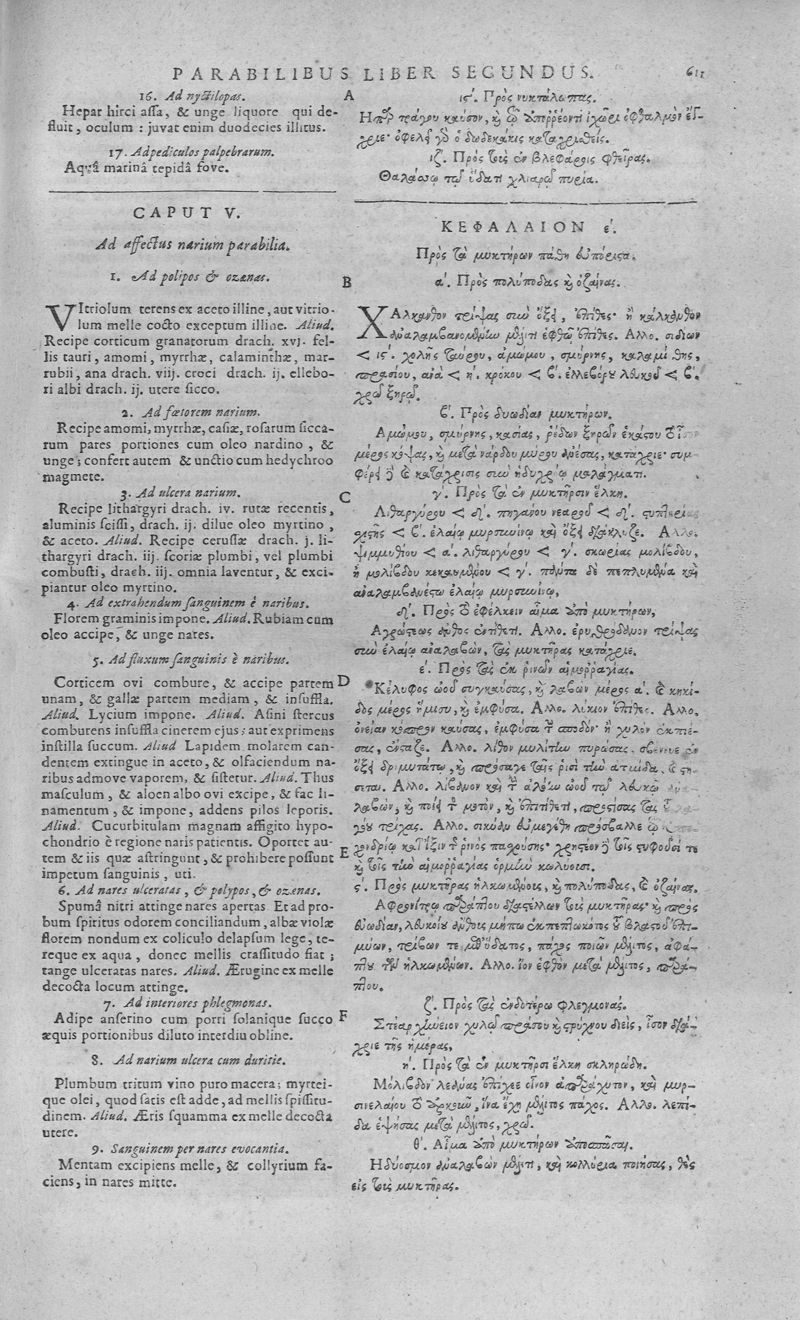 PARABILIBUS LIBER SECUNDUS. 611
16. Ad nyctilopas.
Hepar hirci aſſa, & unge liquore qui de-
fluit, oculum: juvat enim duodecies illitus.
17. Ad pediculos palpebrarum.
Aquâ marinâ tepidâ fove.
CAPUT V.
Ad affectus narium parabilia.
1. Ad polipos & ozænas.
VItriolum terens ex aceto illine, aut vitrio-
lum melle cocto exceptum illine. Aliud.
Recipe corticum granatorum drach. xvj. fel-
lis tauri, amomi, myrrhæ, calaminthæ, mar-
rubii, ana drach. viij. croci drach. ij. ellebo-
ri albi drach. ij. utere ſicco.
2. Ad fœtorem narium.
Recipe amomi, myrrhæ, caſiæ, roſarum ſicca-
rum pares portiones cum oleo nardino, &
unge; confert autem & unctio cum hedychroo
magmete.
3. Ad ulcera narium.
Recipe lithargyri drach. iv. rutæ recentis,
aluminis ſciſſi, drach. ij. dilue oleo myrtino,
& aceto. Aliud. Recipe ceruſſæ drach. j. li-
thargyri drach. iij. ſcoriæ plumbi, vel plumbi
combuſti, drach. iij. omnia laventur, & exci-
piantur oleo myrtino.
4. Ad extrahendum ſanguinem è naribus.
Florem graminis impone. Aliud. Rubiam cum
oleo accipe, & unge nares.
5. Ad fluxum ſanguinis è naribus.
Corticem ovi combure, & accipe partem
unam, & gallæ partem mediam, & inſuffla.
Aliud. Lycium impone. Aliud. Aſini ſtercus
comburens inſuffla cinerem ejus; aut exprimens
inſtilla ſuccum. Aliud Lapidem molarem can-
dentem extingue in aceto, & olfaciendum na-
ribus admove vaporem, & ſiſtetur. Aliud. Thus
maſculum, & aloen albo ovi excipe, & fac li-
namentum, & impone, addens pilos leporis.
Aliud. Cucurbitulam magnam affigito hypo-
chondrio è regione naris patientis. Oportet au-
tem & iis quæ aſtringunt, & prohibere poſſunt
impetum ſanguinis, uti.
6. Ad nares ulceratas, & polypos, & ozænas.
Spumâ nitri attinge nares apertas. Et ad pro-
bum ſpiritus odorem conciliandum, albæ violæ
florem nondum ex coliculo delapſum lege, te-
reque ex aqua, donec mellis craſſitudo fiat;
tange ulceratas nares. Aliud. Ærugine ex melle
decocta locum attinge.
7. Ad interiores phlegmonas.
Adipe anſerino cum porri ſolanique ſucco
æquis portionibus diluto interdiu obline.
8. Ad narium ulcera cum duritie.
Plumbum tritum vino puro macera; myrtei-
que olei, quod ſatis eſt adde, ad mellis ſpiſſitu-
dinem. Aliud. Æris ſquamma ex melle decocta
utere.
9. Sanguinem per nares evocantia.
Mentam excipiens melle, & collyrium fa-
ciens, in nares mitte.
A
B
C
D
E
F
ιϛʹ. Πρὸς νυκτάλωπας.
Ηπαρ τράγου καῦσον, καὶ τῷ ἀπορρέοντι ἰχῶρι ὀφθαλμὸν ἔγ-
χριε· ὠφελεῖ γὰρ ὁ δωδεκάκις καταχρισθείς.
ιζʹ. Πρὸς τοὺς ἐν βλεφάροις φθεῖρας.
Θαλάσσῳ τῷ ὕδατι χλιαρῷ πυρία.
ΚΕΦΑΛΑΙΟΝ εʹ.
Πρὸς τὰ μυκτήρων πάθη εὐπόριστα.
αʹ. Πρὸς πολύποδας καὶ ὀζαίνας.
ΧΑλκανθον τρίψας σὺν ὄξει, ἐπίθες· ἢ χάλκανθον
ἀναλαμβανομένην μέλιτι ἑφθῷ ἐπίθες. Αλλο. σιδίων
< ιϛʹ. χολῆς ταύρου, ἀμώμου, σμύρνης, καλαμίνθης,
πρασίου, ἀνὰ < ηʹ. κρόκου < βʹ. ἐλλεβόρου λευκοῦ < βʹ.
χρῶ ξηρῷ.
βʹ. Πρὸς δυσωδίαν μυκτήρων.
Αμώμου, σμύρνης, κασίας, ῥόδων ξηρῶν ἑκάστου τὸ ἴσον
μέρος κόψας, καὶ μετὰ νάρδου μύρου ἀνέσας, κατάχριε· συμ-
φέρει δὲ καὶ κατάχρισις σὺν ἡδυχρόῳ μαλάγματι.
γʹ. Πρὸς τὰ ἐν μυκτῆρσιν ἕλκη.
Λιθαργύρου < δʹ. πηγάνου νεαροῦ < δʹ. στυπτηρί
χιστῆς < βʹ. ἐλαίῳ μυρσίνῳ καὶ ὄξει διάκλυζε. Αλλο.
ψιμμυθίου < αʹ. λιθαργύρου < γʹ. σκωρίας μολίβδου,
ἢ μολίβδου κεκαυμένου < γʹ. πάντα δὲ πεπλυμένα καὶ
ἀναλαμβανέσθω ἐλαίῳ μυρσίνῳ,
δʹ. Πρὸς τὸ ἐφέλκειν αἷμα ἀπὸ μυκτήρων,
Αγρώστεως ἄνθος ἐντίθει. Αλλο. ἐρυθρόδανον τρίψας
σὺν ἐλαίῳ ἀναλαβὼν, τοὺς μυκτῆρας κατάχριε.
εʹ. Πρὸς τὰς ἐκ ῥινῶν αἱμορραγίας.
Κέλυφος ὠοῦ συγκαύσας, καὶ λαβὼν μέρος αʹ. καὶ κηκί-
δος μέρος ἥμισυ, καὶ ἐμφύσα. Αλλο. λύκιον ἐπίθες. Αλλο,
ὀνείαν κόπρον καύσας, ἐμφύσα τὴν σποδόν· ἢ χυλὸν ἐκπιέ-
σας, ἐνστάζε. Αλλο. λίθον μυλίτην πυρώσας, σβέννυε ἐν
ὄξει δριμυτάτῳ, καὶ πρόσαγε ταῖς ῥισὶ τὴν ἀτμίδα,
Αλλο. λίβανον καὶ ἀλόην ὠοῦ τῷ λευκῷ
λαβὼν, καὶ ποίει μοτὸν, καὶ ἐπιτίθει,
τρίχας. Αλλο. σικύαν εὐμεγέθη πρόσβαλλε
χονδρίῳ κατ᾽ ἴξιν τῆς ῥινὸς πασχούσης· χρηστέον δὲ τοῖς στύφουσί τε
καὶ τοῖς τὴν αἱμορραγίας ὁρμὴν κωλύουσι.
ϛʹ. Πρὸς μυκτῆρας ἡλκωμένους, καὶ πολύποδας, καὶ ὀζαίνας.
Αφρονίτρῳ παράπτου διαστέλλων τοὺς μυκτῆρας· καὶ πρὸς
εὐωδίαν, λευκοΐου ἄνθους μήπω ἐκπεπτωκότος τοῦ βλαστοῦ ἐπι-
μύων, τρίβων τε μεθ᾽ ὕδατος, πάχος ποιῶν μέλιτος, ἀφά-
πτου τῶν ἡλκωμένων. Αλλο. ἰὸν ἑφθὸν μετὰ μέλιτος, παρά-
πτου.
ζʹ. Πρὸς τὰς ἐνδοτέρω φλεγμονάς.
Στέαρ χήνειον χυλῷ πράσου καὶ στρύχνου διεὶς, ἴσον διά-
χριε τῆς ἡμέρας,
ηʹ. Πρὸς τὰ ἐν μυκτῆρσι ἕλκη σκληρώδη.
Μόλιβδον λεάνας ἐπίχεε οἶνον ἄκρατον, καὶ μυρ-
σινελαίου τὸ ἀρκοῦν, ἵνα ἔχῃ μέλιτος πάχος. Αλλο. λεπί-
δα ἑψήσας μετὰ μέλιτος, χρῶ.
θʹ. Αἷμα ἀπὸ μυκτήρων ἀποσπᾶσαι.
Ηδύοσμον ἀναλαβὼν μέλιτι, καὶ κολλύρια ποιήσας, θὲς
εἰς τοὺς μυκτῆρας.